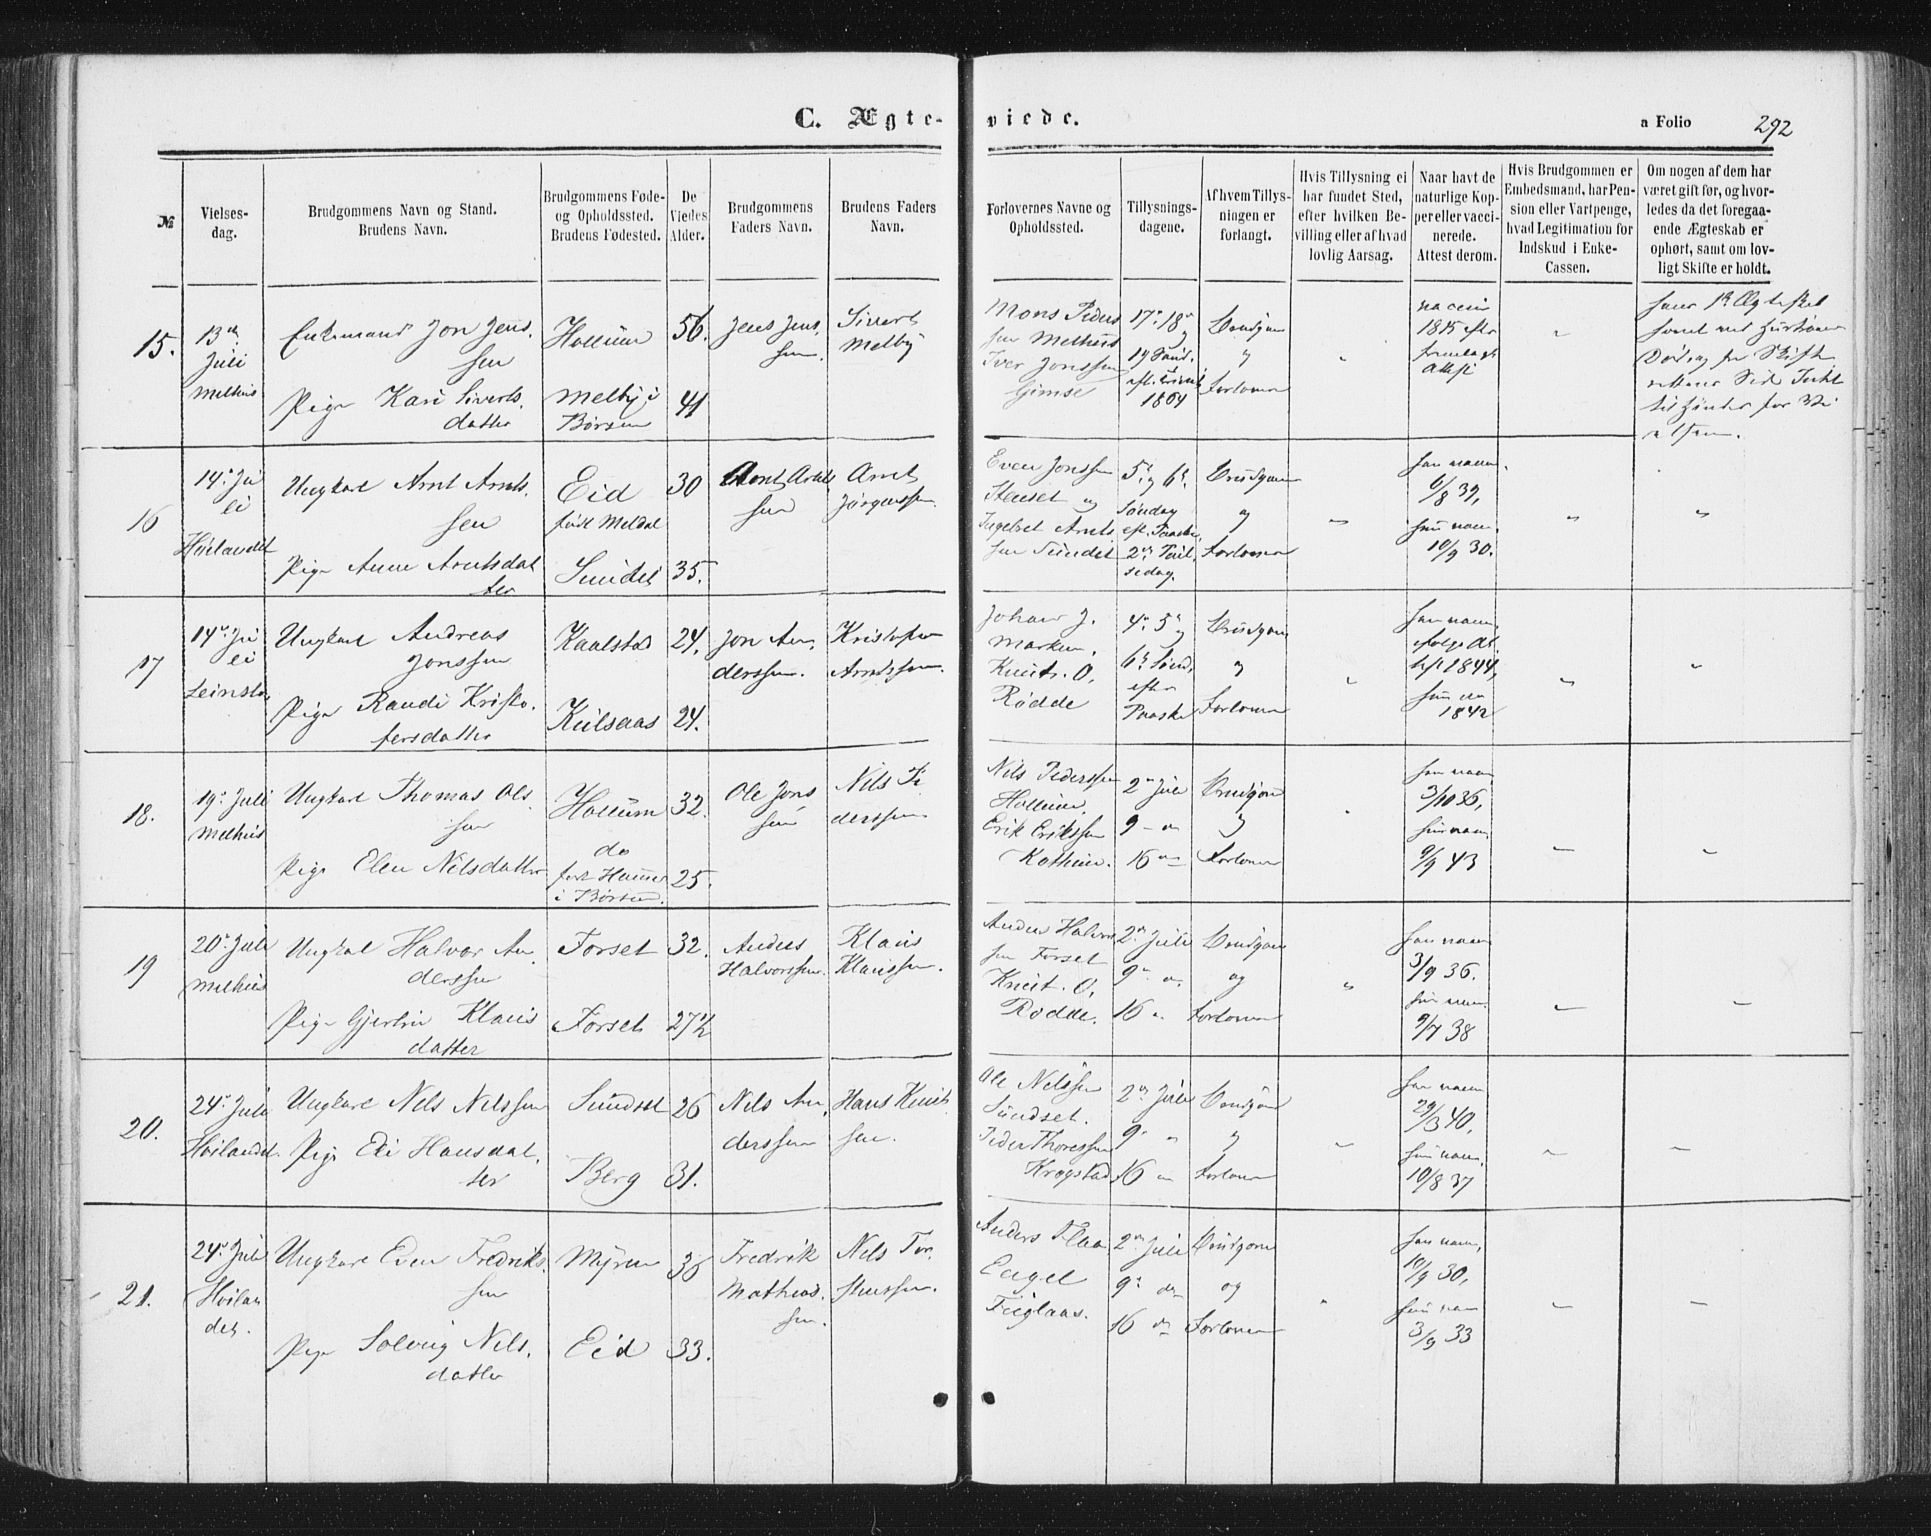 C. Ægteviede.
a Folio 292
№
Vielsesdag.
Brudgommens Navn og Stand.
Brudens Navn.
Brudgommens Føde-
og Opholdssted.
Brudens Fødested.
De
Viedes
Alder.
Brudgommens
Faders Navn.
Brudens Faders
Navn.
Forlovernes Navne og
Opholdssted.
Tillysnings-
dagene.
Af hvem Tillys-
ningen er
forlangt.
Hvis Tillysning ei
har fundet Sted,
efter hvilken Be-
villing eller af hvad
lovlig Aarsag.
Naar havt de
naturlige Kop-
per eller vacci-
nerede.
Attest derom.
Hvis Brudgommen er
Embedsmand, har Pen-
sion eller Vartpenge,
hvad Legitimation for
Indskud i Enke-
Cassen.
Om nogen af dem har
været gift før, og hvor-
ledes da det foregaa-
ende Ægteskab er
ophørt, samt om lov-
ligt Skifte er holdt.
15.
13de
Juli
Melhus
Enkemand Jon Jens-
sen
Pige Kari Siverts-
datter
Hollum
Melby i
Børsen
56.
41
Jens Jens-
sen.
Sivert
Melby
Mons Peders
sen Melhus
Iver Jonssen
Gimse
17. 18
19 Sønd.
1864
Brudgom
Forlover
1815 efter
16
14. Ju
li
Høilandet
Ungkarl Arnt Arnt-
sen
Pige Anne Arntsdat
ter
Eid
født Meldal
Sundet
30
35.
Arnt Arnt
sen
Arnt
Jørgenssen
Even Jonssen
og
Ingebret Arnt-
sen Sundet
5. 6.
Søndag
Brudgom
og
Forlover
han nam.
6/8 39,
hun nam.
10/9 30.
17
14. Ju
li
Leinstr
Ungkarl Andreas
Jonssen
Pige Randi Kristo-
fersdatter
Kaalstad
Kulsaas
24.
24.
Jon An-
derssen.
Kristofer
Arntssen.
Johan J.
Marken.
Knut. O.
Rødde
4. 5
6. Sønd.
efter
Paaske
Brudgom
Forlover
han nam.
1844,
hun
1842
18.
19. Juli
Melhus
Ungkarl Thomas Ols-
sen
Pige Elen Nilsdatter
Hollum
do
født
i Børsen.
32.
25.
Ole Jons
sen
Nils Pe
derssen
Nils Pederssen
Hollum
Erik Erikssen
2 Juli
9 -
16
Brudgom
Forlover
han nam
3/10 36,
hun nam.
9/9 43
19
20. Juli
Melhus
Ungkarl Halvor An-
derssen
Pige Gjertru Klaus
datter
Forset
Forset
32.
27 1/2
Anders
Halvorssen.
Klaus
Klaussen.
Anders Halvor
sen Forset
Knut. O.
Rødde.
2. Juli
9
16
Brudgom
og
Forlover
han nam
3/9 36.
hun nam.
9/7 38
20.
24. Juli
Høilandet.
Ungkarl Nils Nilssen
Pige Eli Hansdat-
ter
Sundset
Berg
26
31.
Nils An-
derssen
Hans Knut-
sen.
Ole Nilssen
Sundset.
Peder Thoressen
Krogstad
2 Juli
9
16
Brudgom
Forlover
han nam
29/3 40,
hun nam.
10/8 37
21.
24. Juli
Høilan
det.
Ungkarl Even Fredriks-
sen
Pige Solveig Nils-
datter
Myren
Eid
36
33.
Fredrik
Mathias-
sen.
Nils Tor-
stenssen.
Anders Flaa
Engel
Fuglaas.
2 Juli
9
16
Brudgom
og
Forlover
han nam.
10/9 30,
hun nam
3/9 33